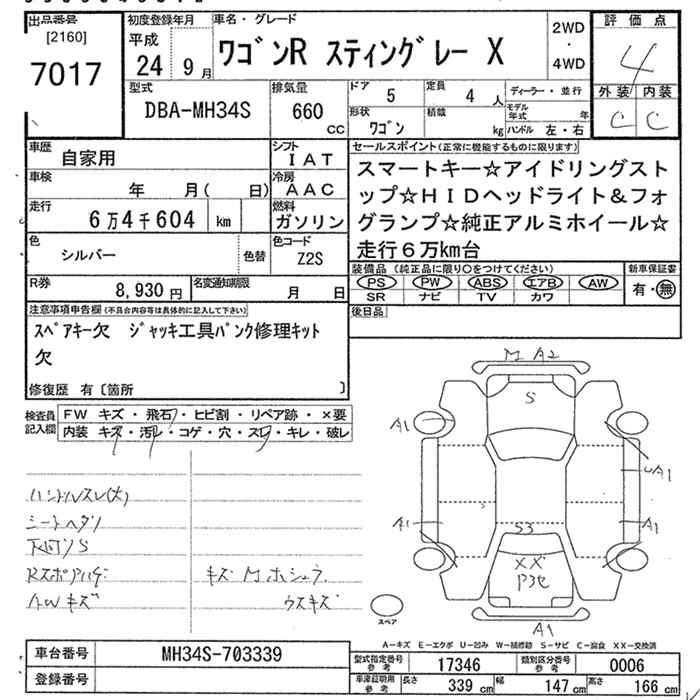 出品番号
[2160]
7017
初度登録年月
平成
24 9月
車名・グレード
ワゴンR スティングレー X
2WD
・
4WD
評価点
4
外装 内装
C C
型式
DBA-MH34S
排気量
660
CC
ドア 5
定員 4 人
ディーラー・並行
形状 ワゴン
積載 kg
モデル年式 年
ハンドル 左・右
車歴 自家用
シフト IAT
車検 年 月( 日)
冷房 AAC
走行 6万4千604 km
燃料 ガソリン
色 シルバー
色替
色コード Z2S
R券 8,930円
名変通知期限 月 日
セールスポイント(正常に機能するものに限ります)
スマートキー☆アイドリングスト
ップ☆HIDヘッドライト&フォ
グランプ☆純正アルミホイール☆
走行6万km台
装備品 (純正品に限り○をつけてください)
新車保証書
PS PW ABS エアB AW
有・無
SR ナビ TV カワ
後日品
注意事項申告欄(不具合内容等は具体的に記入して下さい)
スペアキー欠 ジャッキ工具パンク修理キット
欠
修復歴 有〔箇所 〕
検査員
記入欄
FW キズ・飛石・ヒビ割・リペア跡・×要
内装 キズ・汚レ・コゲ・穴・スレ・キレ・破レ
ハンドルスレ(大)
シートヘタリ
下回りS
Rスポアハゲ
AWキズ
キズ M ホシュラ
ウスキズ
M A2
S
A1
UA1
A1
A1
S3
XX
P3セ
A1
スペア
A-キズ E-エクボ U-凹み W-補修跡 S-サビ C-腐食 XX-交換済
車台番号 MH34S-703339
登録番号
型式指定番号
参考
17346
類別区分番号
参考
0006
車庫証明用
参考
長さ 339 cm
幅 147 cm
高さ 166 cm